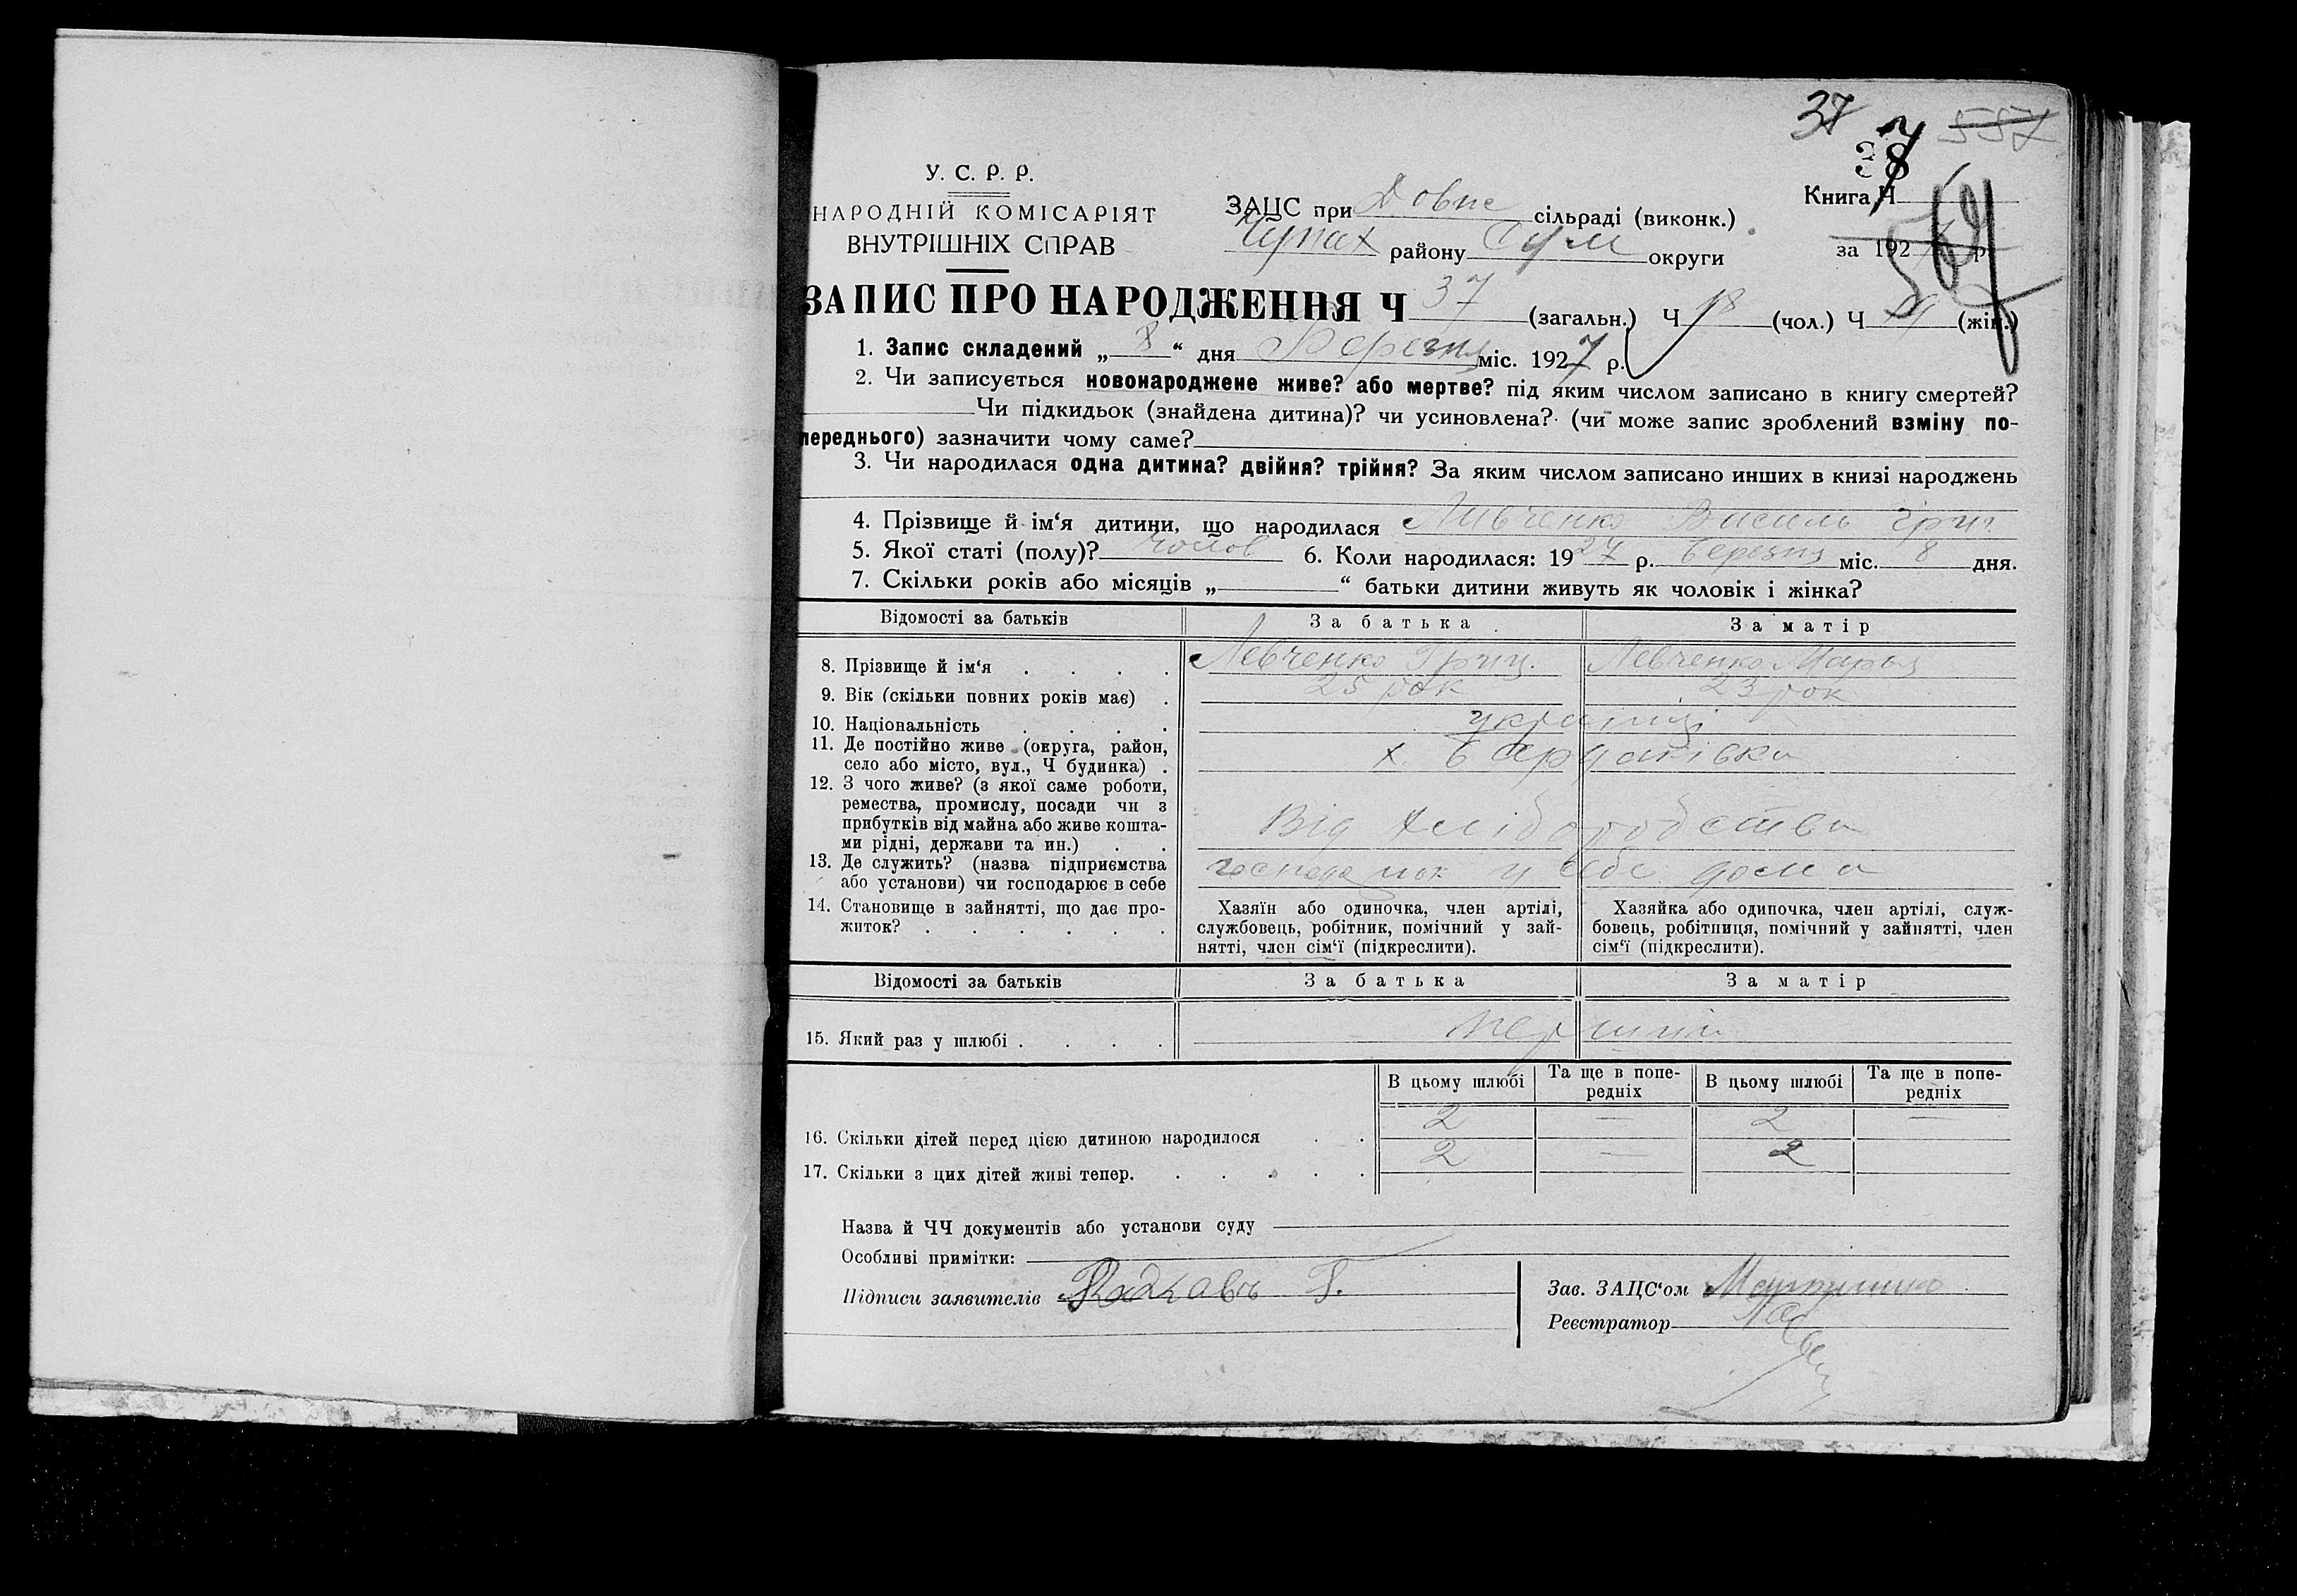 37
38 557
У. С. Р. Р.
НАРОДНІЙ КОМІСАРІЯТ
ВНУТРІШНІХ СПРАВ
ЗАЦС при Довж сільраді (виконк.)
Чупах району Сум округи
Книга Ч
за 192 р.
569
ЗАПИС ПРО НАРОДЖЕННЯ Ч 37 (загальн.) Ч 18 (чол.) Ч 19 (жін.)
1. Запис складений „ 8 “ дня Березня міс. 1927 р.
2. Чи записується новонароджене живе? або мертве? під яким числом записано в книгу смертей?
Чи підкидьок (знайдена дитина)? чи усиновлена? (чи може запис зроблений взміну по-
переднього) зазначити чому саме?
3. Чи народилася одна дитина? двійня? трійня? За яким числом записано инших в книзі народжень
4. Прізвище й ім‘я дитини, що народилася Ливченко Василь Гриц.
5. Якої статі (полу)? чолов 6. Коли народилася: 1927 р. березня міс. 8 дня.
7. Скільки років або місяців „ “ батьки дитини живуть як чоловік і жінка?
Відомості за батьків За батька За матір
8. Прізвище й ім‘я Левченко Гриц. Левченко Марья
9. Вік (скільки повних років має) 25 рок 23 рок
10. Національність українці
11. Де постійно живе (округа, район,
село або місто, вул., Ч будинка) х. Бардаківка
12. З чого живе? (з якої саме роботи,
ремества, промислу, посади чи з
прибутків від майна або живе кошта-
ми рідні, держави та ин.) Від хліборобства
13. Де служить? (назва підприємства
або установи) чи господарює в себе у себе дома
14. Становище в зайнятті, що дає про-
житок?
Хазяїн або одиночка, член артілі,
службовець, робітник, помічний у зай-
нятті, член сім‘ї (підкреслити).
Хазяйка або одиночка, член артілі, служ-
бовець, робітниця, помічний у зайнятті, член
сім‘ї (підкреслити).
Відомості за батьків За батька За матір
15. Який раз у шлюбі перший
В цьому шлюбі Та ще в попе-
редніх В цьому шлюбі Та ще в попе-
редніх
16. Скільки дітей перед цією дитиною народилося 2 — 2 —
17. Скільки з цих дітей живі тепер. 2 — 2
Назва й ЧЧ документів або установи суду
Особливі примітки:
Підписи заявителів Г.
Зав. ЗАЦС‘ом
Реєстратор